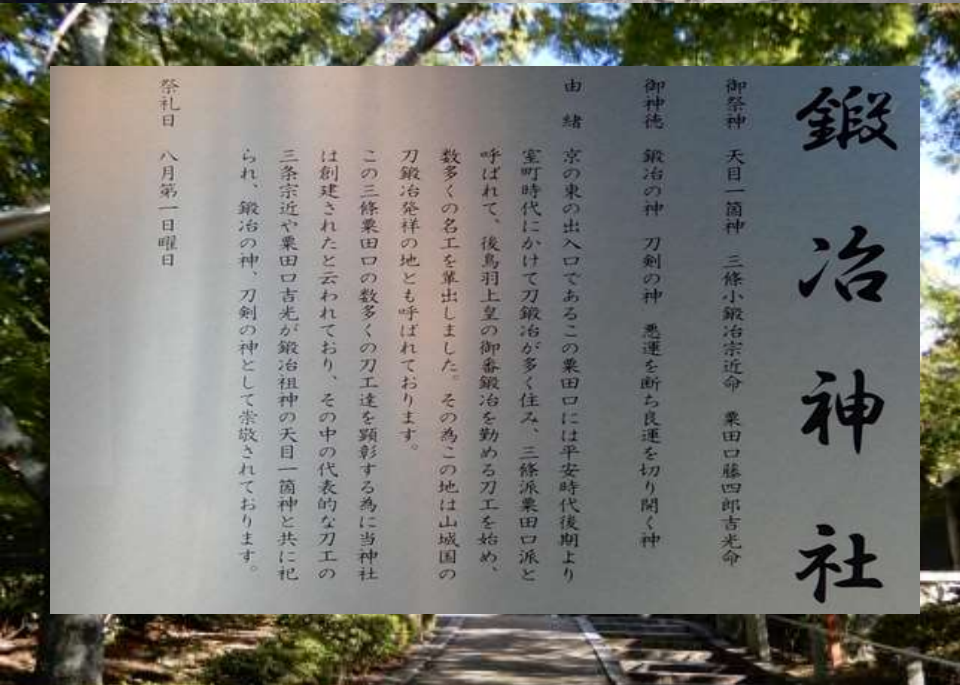 鍛冶神社
御祭神 天目一箇神 三條小鍛冶宗近命 粟田口藤四郎吉光命
御神徳 鍛冶の神 刀剣の神 悪運を断ち良運を切り開く神
由緒 京の東の出入口であるこの粟田口には平安時代後期より
室町時代にかけて刀鍛冶が多く住み、三條派粟田口派と
呼ばれて、後鳥羽上皇の御番鍛冶を勤める刀工を始め、
数多くの名工を輩出しました。その為この地は山城国の
刀鍛冶発祥の地とも呼ばれております。
この三條粟田口の数多くの刀工達を顕彰する為に当神社
は創建されたと云われており、その中の代表的な刀工の
三条宗近や粟田口吉光が鍛冶祖神の天目一箇神と共に祀
られ、鍛冶の神、刀剣の神として崇敬されております。
祭礼日 八月第一日曜日